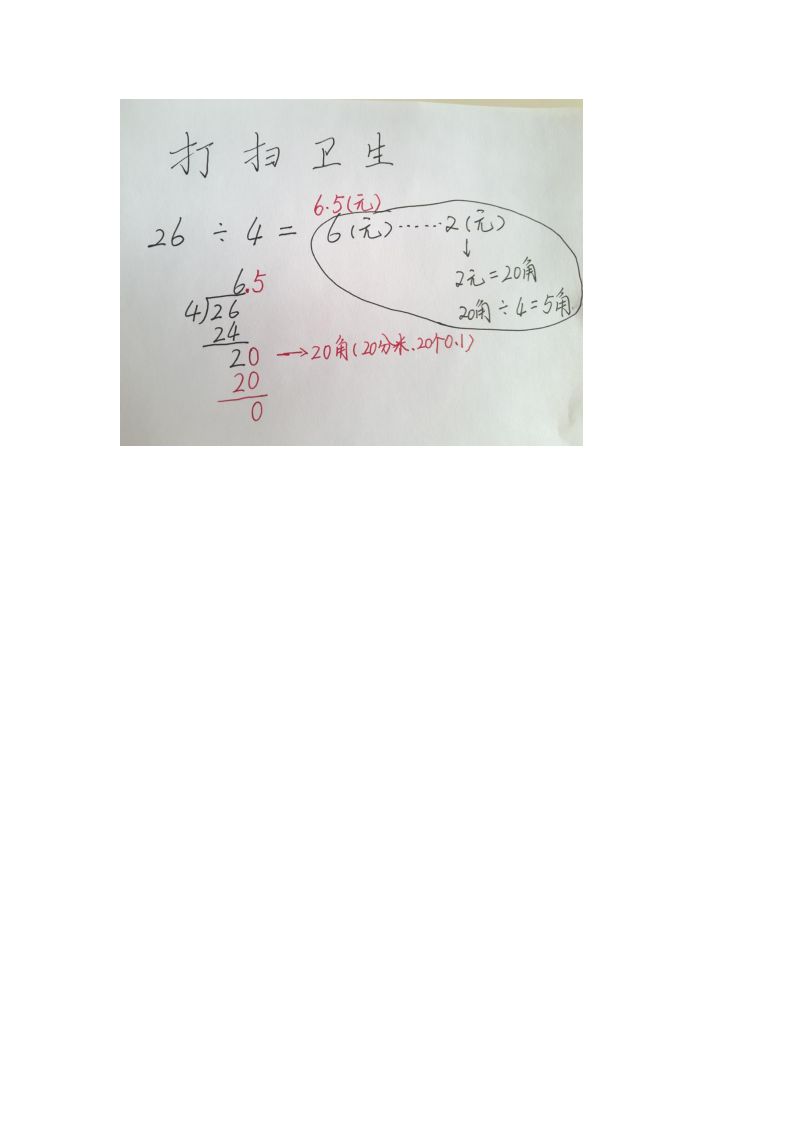 打扫卫生
6.5(元)
26 ÷ 4 = 6(元)……2(元)
↓
2元=20角
20角÷4=5角
6.5
4)26
24
20 →20角(20分米、20个0.1)
20
0